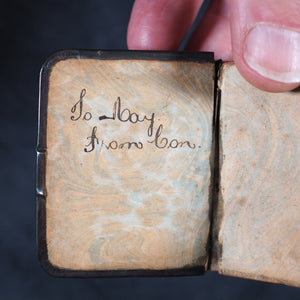 To May.
from Con.